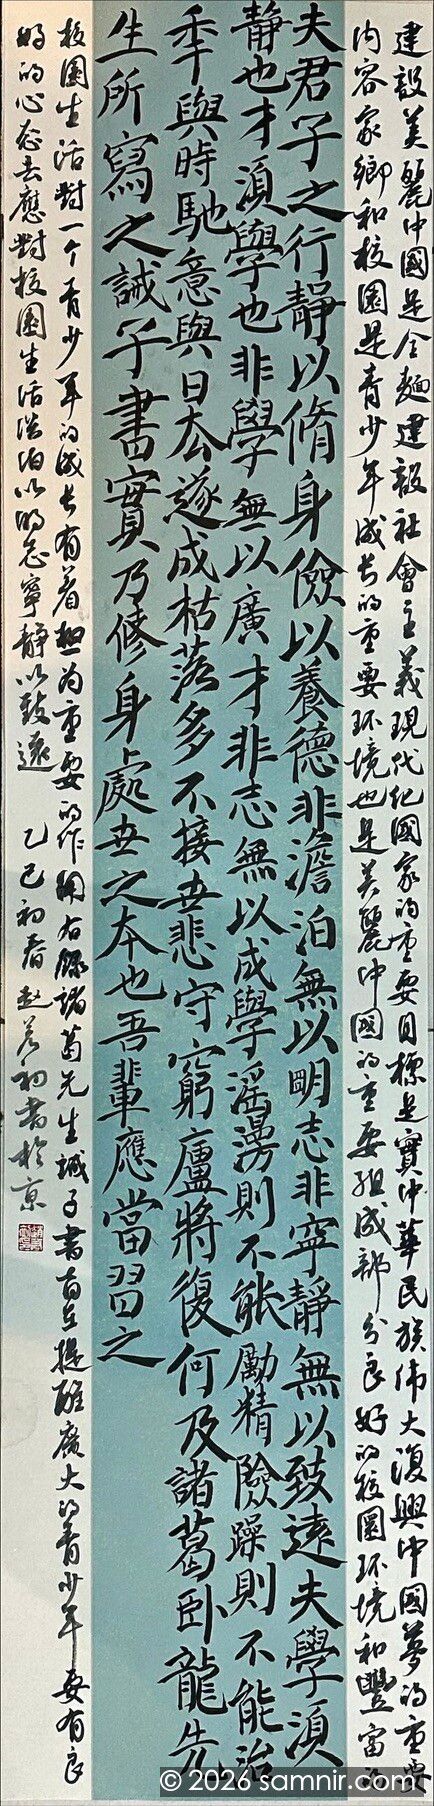 建設美麗中國是全麵建設社會主義現代化國家的重要目標是實中華民族偉大復興中國夢的重要
內容家鄉和校園是青少年成长的重要环境也是美麗中國的重要組成部分良好的校園环境和豐富的
夫君子之行靜以脩身儉以養德非澹泊無以明志非寧靜無以致遠夫學須
靜也才須學也非學無以廣才非志無以成學滛漫則不能勵精險躁則不能治
秊與時馳意與日去遂成枯落多不接世悲守窮廬將復何及諸葛卧龍先
生所寫之誡子書實乃修身處世之本也吾輩應當習之
校園生活對一个青少年的成长有着極为重要的作用右錄諸葛先生誡子書旨在提醒廣大的青少年要有良
好的心态去應對校園生活淡泊以明志寧靜以致遠 乙巳初春赵 初書於京
© 2026 samnir.com